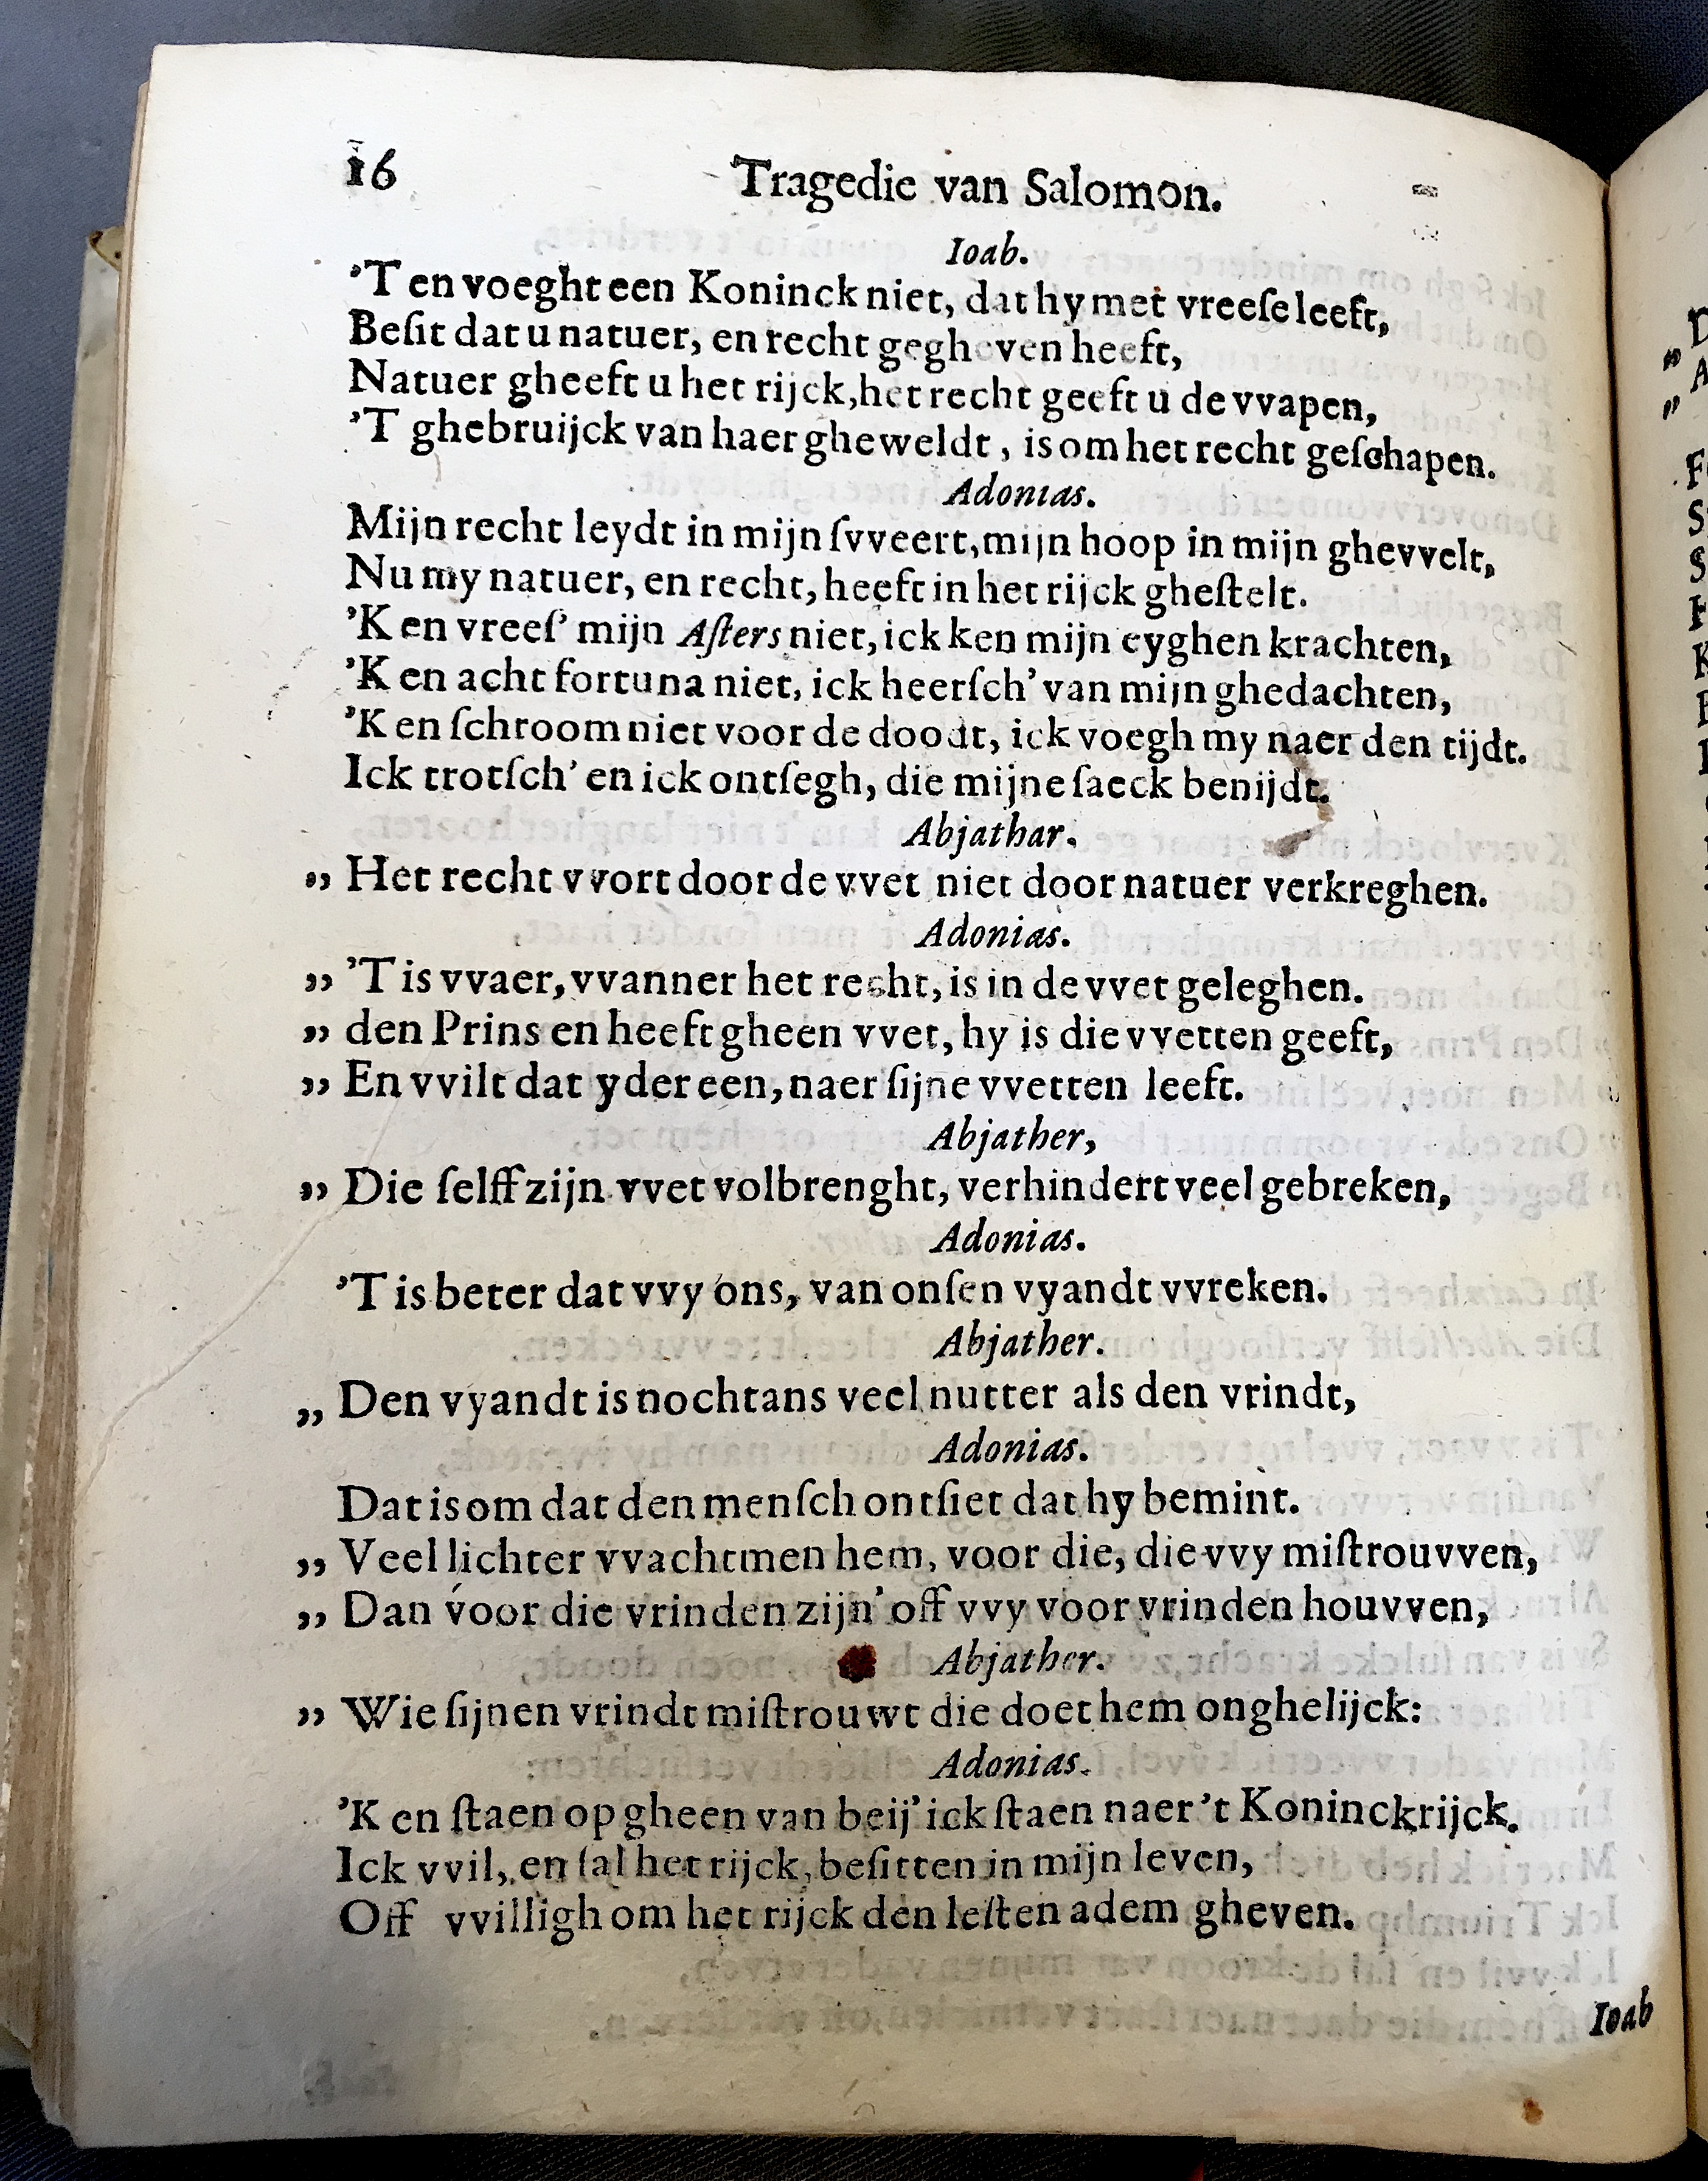 16 Tragedie van Salomon.
Ioab.
’T en voeght een Koninck niet, dat hy met vreeſe leeft,
Beſit dat u natuer, en recht gegheven heeft,
Natuer gheeft u het rijck, het recht geeft u de vvapen,
’T ghebruijck van haer gheweldt, is om het recht geſchapen.
Adonias.
Mijn recht leydt in mijn ſvveert, mijn hoop in mijn ghevvelt,
Nu my natuer, en recht, heeft in het rijck gheſtelt.
’K en vreeſ’ mijn Aſters niet, ick ken mijn eyghen krachten,
’K en acht fortuna niet, ick heerſch’ van mijn ghedachten,
’K en ſchroom niet voor de doodt, ick voegh my naer den tijdt.
Ick trotſch’ en ick ontſegh, die mijne ſaeck benijdt.
Abjathar.
„ Het recht vvort door de vvet niet door natuer verkreghen.
Adonias.
„ ’T is vvaer, vvanner het recht, is in de vvet geleghen.
„ den Prins en heeft gheen vvet, hy is die vvetten geeft,
„ En vvilt dat yder een, naer ſijne vvetten leeft.
Abjather,
„ Die ſelff zijn vvet volbrenght, verhindert veel gebreken,
Adonias.
’T is beter dat vvy ons, van onſen vyandt vvreken.
Abjather.
„ Den vyandt is nochtans veel nutter als den vrindt,
Adonias.
Dat is om dat den menſch ontſiet dat hy bemint.
„ Veel lichter vvacht men hem, voor die, die vvy miſtrouvven,
„ Dan voor die vrinden zijn’ off vvy voor vrinden houvven,
Abjather.
„ Wie ſijnen vrindt miſtrouwt die doet hem onghelijck:
Adonias.
’K en ſtaen op gheen van beij’ ick ſtaen naer ’t Koninckrijck.
Ick vvil, en ſal het rijck, beſitten in mijn leven,
Off vvilligh om het rijck den leſten adem gheven.
Ioab